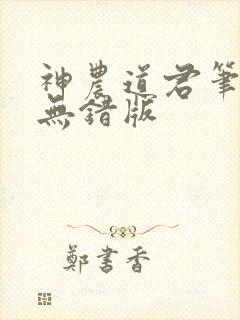 神農道君筆
無錯版
鄭書香